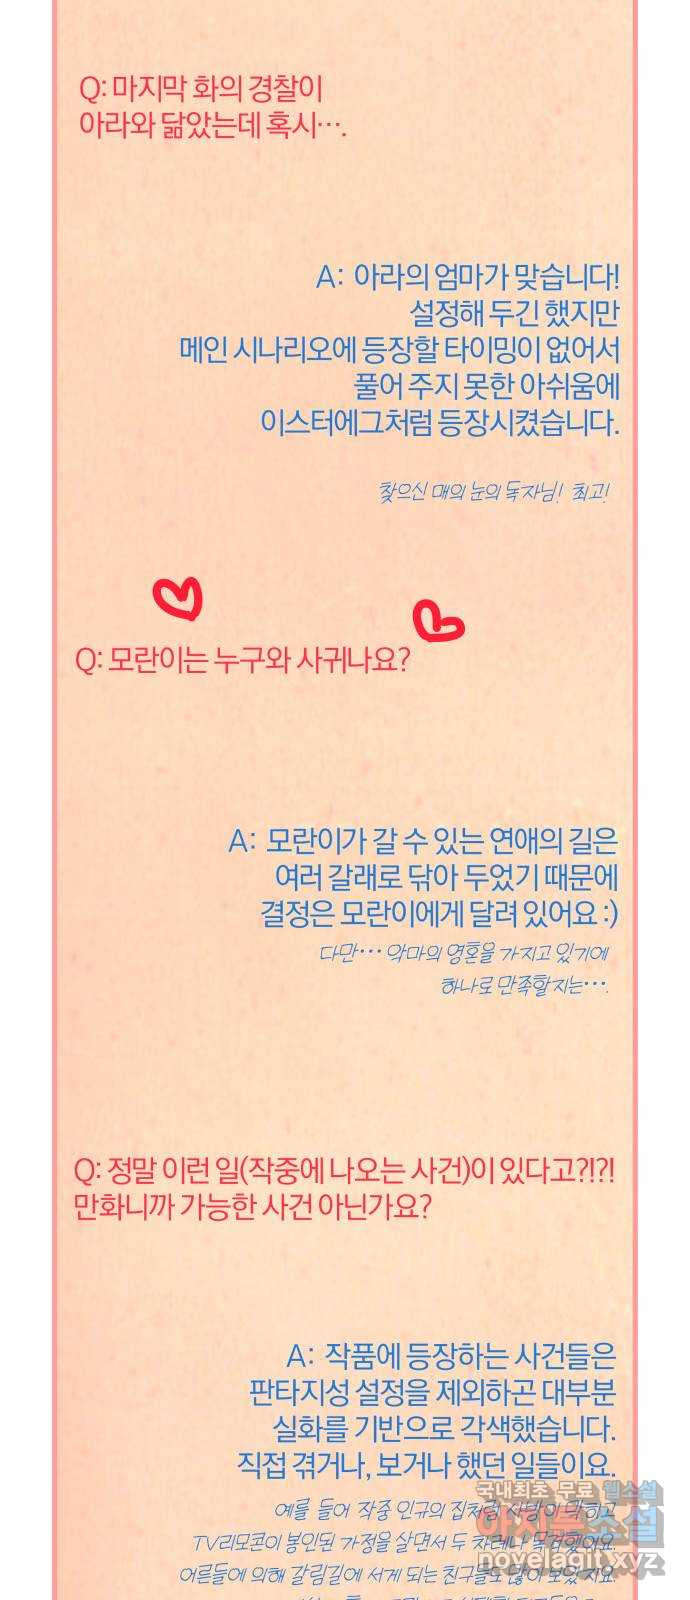 Q: 마지막 화의 경찰이
아라와 닮았는데 혹시….
A: 아라의 엄마가 맞습니다!
설정해 두긴 했지만
메인 시나리오에 등장할 타이밍이 없어서
풀어 주지 못한 아쉬움에
이스터에그처럼 등장시켰습니다.
찾으신 매의 눈의 독자님! 최고!
Q: 모란이는 누구와 사귀나요?
A: 모란이가 갈 수 있는 연애의 길은
여러 갈래로 닦아 두었기 때문에
결정은 모란이에게 달려 있어요 :)
다만… 악마의 영혼을 가지고 있기에
하나로 만족할지는….
Q: 정말 이런 일(작중에 나오는 사건)이 있다고?!?!
만화니까 가능한 사건 아닌가요?
A: 작품에 등장하는 사건들은
판타지성 설정을 제외하곤 대부분
실화를 기반으로 각색했습니다.
직접 겪거나, 보거나 했던 일들이요.
국내최초 무료 웹소설
예를 들어 작중 인규의 집처럼
아지툰소설
TV리모콘이 봉인된 가정을 살면서 두 차례나 목격했어요.
novelagit.xyz
어른들에 의해 갈림길에 서게 되는 친구들도 많이 보았지요.